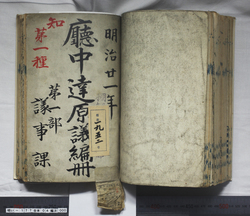 明治廿一年
廳中達原議編冊
第一部
議事課
知
第一種
二九五二